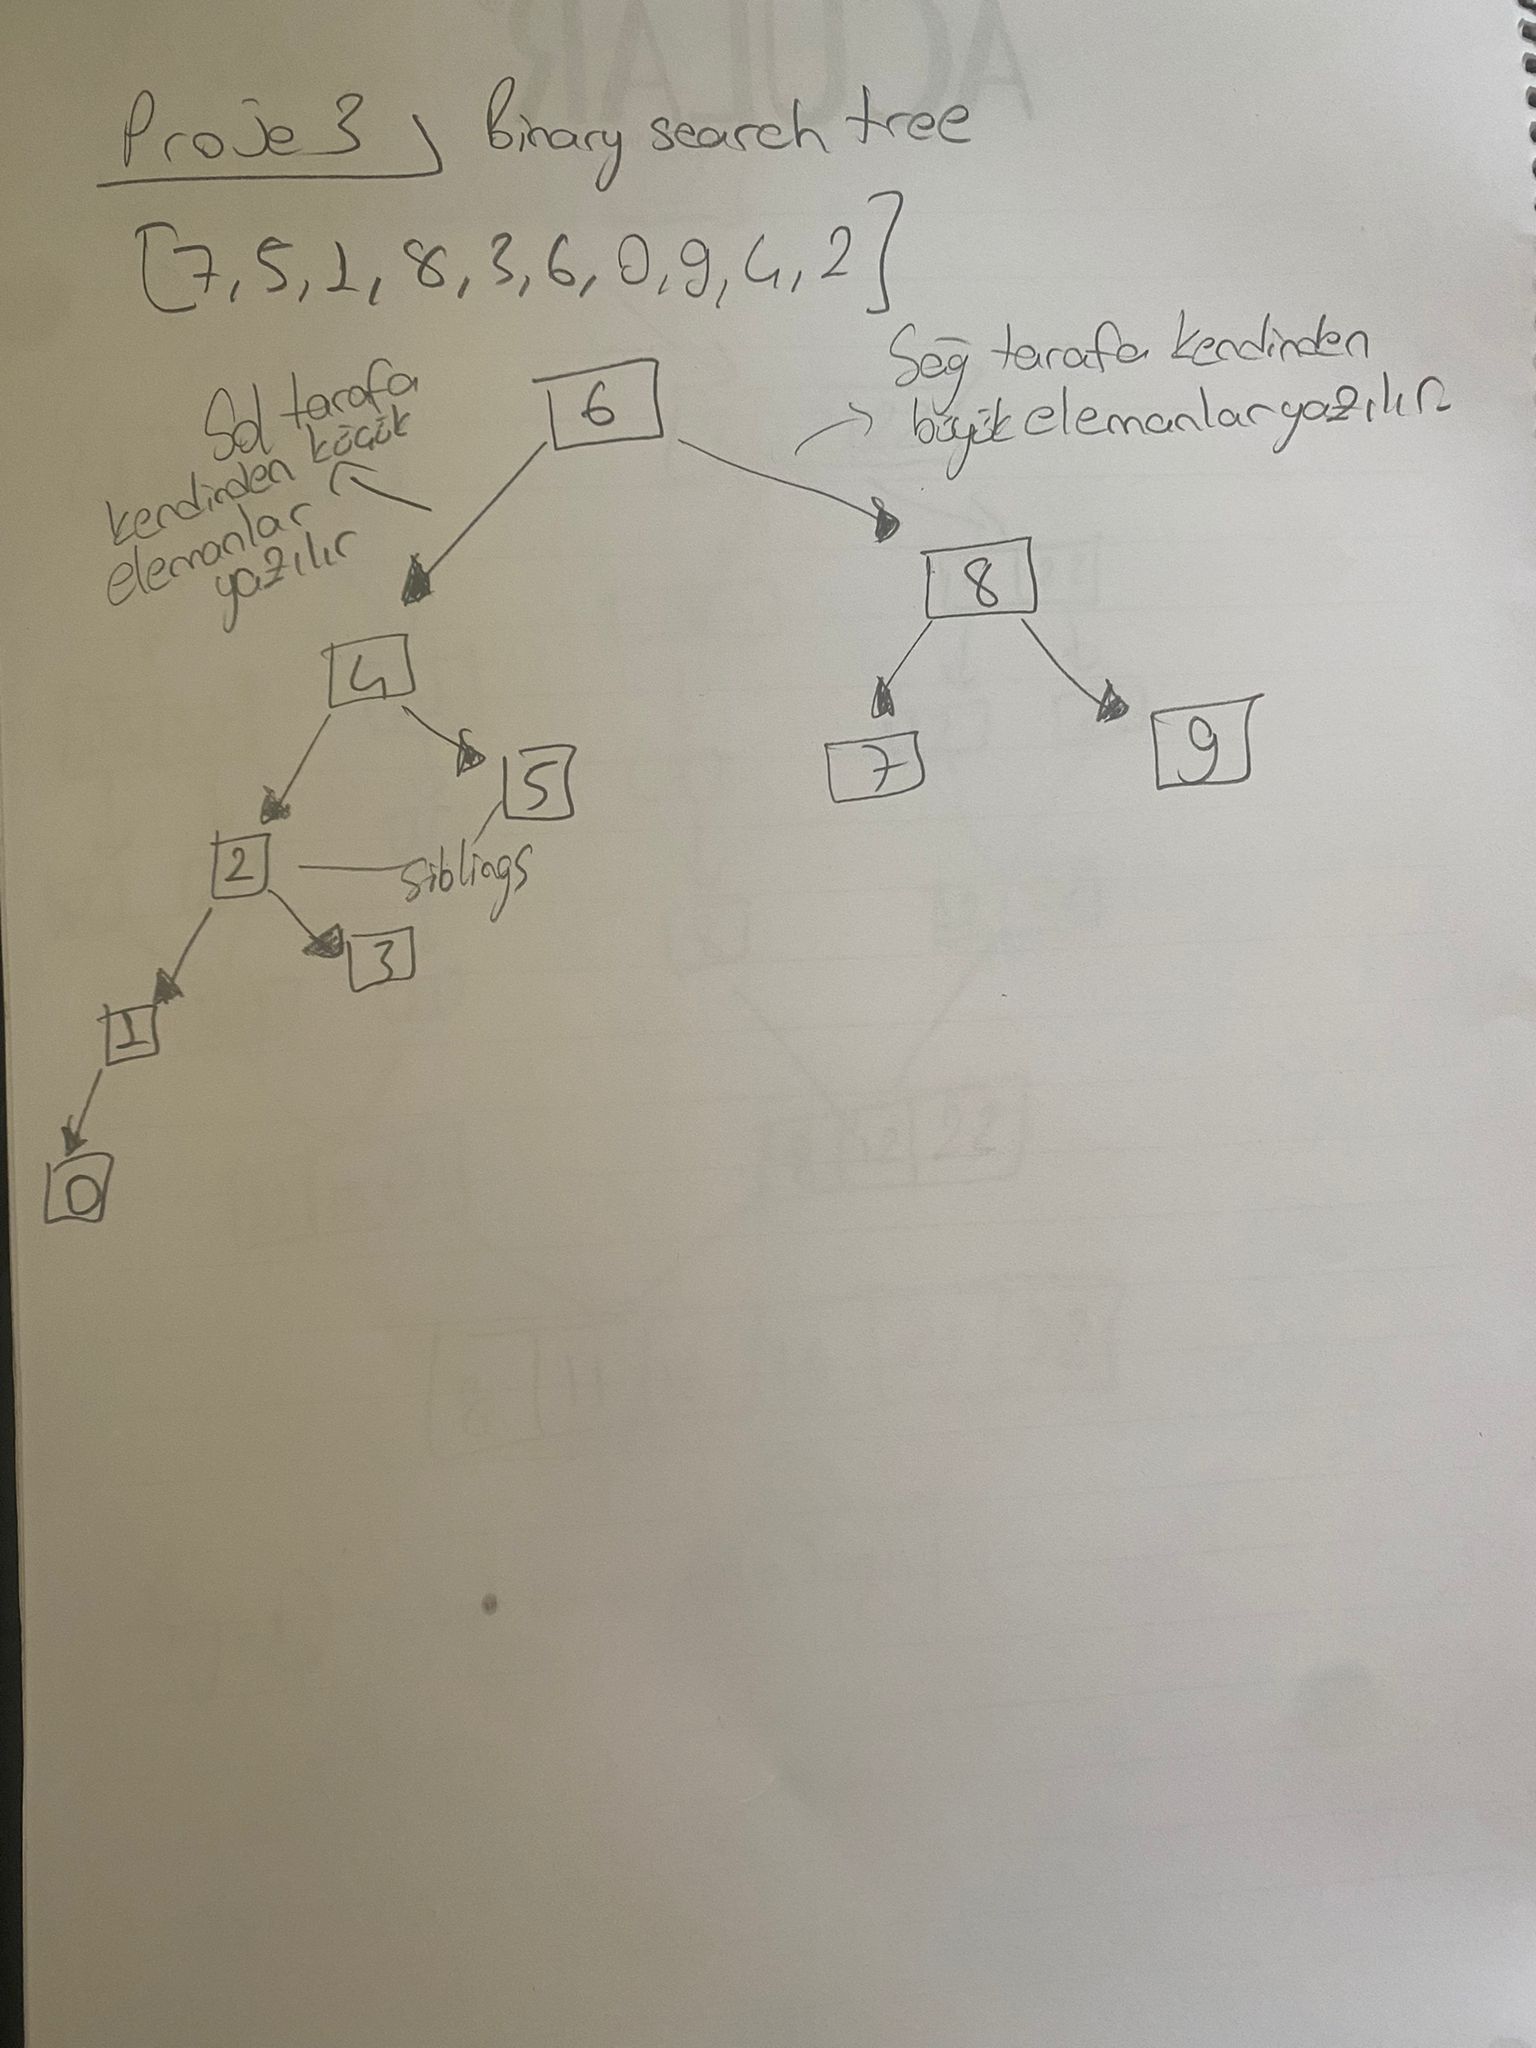 Proje 3) Binary search tree
[7, 5, 1, 8, 3, 6, 0, 9, 4, 2]
Sol tarafa
küçük
kendinden
elemanlar
yazılır
Sağ tarafa kendinden
büyük elemanlar yazılır
6
8
4
7
9
5
2
siblings
3
1
0